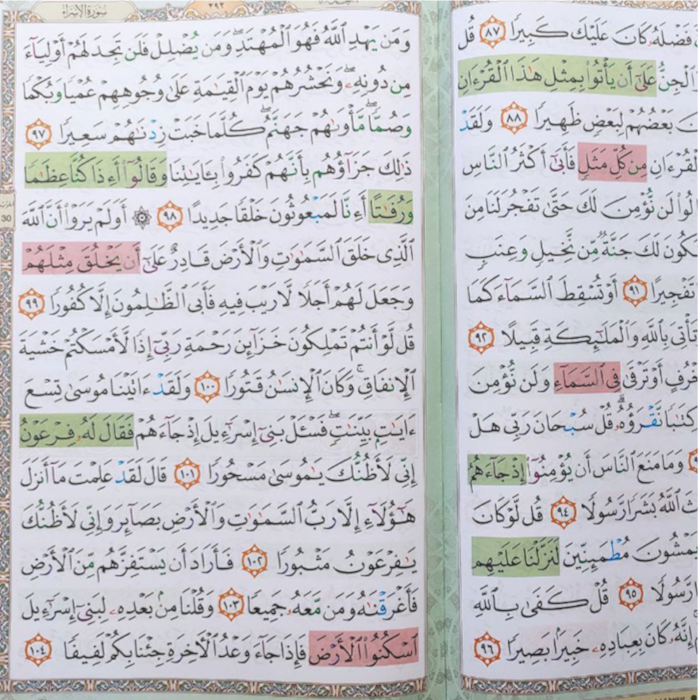 فَضْلَهُۥ كَانَ عَلَيْكَ كَبِيرًا ٨٧ قُل
لْجِنُّ عَلَىٰٓ أَن يَأْتُوا۟ بِمِثْلِ هَٰذَا ٱلْقُرْءَانِ
بَعْضُهُمْ لِبَعْضٍ ظَهِيرًا ٨٨ وَلَقَدْ
لْقُرْءَانِ مِن كُلِّ مَثَلٍ فَأَبَىٰٓ أَكْثَرُ ٱلنَّاسِ
لُوا۟ لَن نُّؤْمِنَ لَكَ حَتَّىٰ تَفْجُرَ لَنَا مِنَ
كُونَ لَكَ جَنَّةٌ مِّن نَّخِيلٍ وَعِنَبٍ
تَفْجِيرًا ٩١ أَوْ تُسْقِطَ ٱلسَّمَآءَ كَمَا
تَأْتِىَ بِٱللَّهِ وَٱلْمَلَٰٓئِكَةِ قَبِيلًا ٩٢
رُفٍ أَوْ تَرْقَىٰ فِى ٱلسَّمَآءِ وَلَن نُّؤْمِنَ
كِتَٰبًا نَّقْرَؤُهُۥ قُلْ سُبْحَانَ رَبِّى هَلْ
وَمَا مَنَعَ ٱلنَّاسَ أَن يُؤْمِنُوٓا۟ إِذْ جَآءَهُمُ
ثَ ٱللَّهُ بَشَرًا رَّسُولًا ٩٤ قُل لَّوْ كَانَ
مْشُونَ مُطْمَئِنِّينَ لَنَزَّلْنَا عَلَيْهِم
رَّسُولًا ٩٥ قُلْ كَفَىٰ بِٱللَّهِ
إِنَّهُۥ كَانَ بِعِبَادِهِۦ خَبِيرًۢا بَصِيرًا ٩٦
٢٩٢
سُورَةُ الإِسْرَاءِ
وَمَن يَهْدِ ٱللَّهُ فَهُوَ ٱلْمُهْتَدِ وَمَن يُضْلِلْ فَلَن تَجِدَ لَهُمْ أَوْلِيَآءَ
مِن دُونِهِۦ وَنَحْشُرُهُمْ يَوْمَ ٱلْقِيَٰمَةِ عَلَىٰ وُجُوهِهِمْ عُمْيًا وَبُكْمًا
وَصُمًّا مَّأْوَىٰهُمْ جَهَنَّمُ كُلَّمَا خَبَتْ زِدْنَٰهُمْ سَعِيرًا ٩٧
ذَٰلِكَ جَزَآؤُهُم بِأَنَّهُمْ كَفَرُوا۟ بِـَٔايَٰتِنَا وَقَالُوٓا۟ أَءِذَا كُنَّا عِظَٰمًا
وَرُفَٰتًا أَءِنَّا لَمَبْعُوثُونَ خَلْقًا جَدِيدًا ٩٨ ۞ أَوَلَمْ يَرَوْا۟ أَنَّ ٱللَّهَ
ٱلَّذِى خَلَقَ ٱلسَّمَٰوَٰتِ وَٱلْأَرْضَ قَادِرٌ عَلَىٰٓ أَن يَخْلُقَ مِثْلَهُمْ
وَجَعَلَ لَهُمْ أَجَلًا لَّا رَيْبَ فِيهِ فَأَبَى ٱلظَّٰلِمُونَ إِلَّا كُفُورًا ٩٩
قُل لَّوْ أَنتُمْ تَمْلِكُونَ خَزَآئِنَ رَحْمَةِ رَبِّىٓ إِذًا لَّأَمْسَكْتُمْ خَشْيَةَ
ٱلْإِنفَاقِ وَكَانَ ٱلْإِنسَٰنُ قَتُورًا ١٠٠ وَلَقَدْ ءَاتَيْنَا مُوسَىٰ تِسْعَ
ءَايَٰتٍۭ بَيِّنَٰتٍ فَسْـَٔلْ بَنِىٓ إِسْرَٰٓءِيلَ إِذْ جَآءَهُمْ فَقَالَ لَهُۥ فِرْعَوْنُ
إِنِّى لَأَظُنُّكَ يَٰمُوسَىٰ مَسْحُورًا ١٠١ قَالَ لَقَدْ عَلِمْتَ مَآ أَنزَلَ
هَٰٓؤُلَآءِ إِلَّا رَبُّ ٱلسَّمَٰوَٰتِ وَٱلْأَرْضِ بَصَآئِرَ وَإِنِّى لَأَظُنُّكَ
يَٰفِرْعَوْنُ مَثْبُورًا ١٠٢ فَأَرَادَ أَن يَسْتَفِزَّهُم مِّنَ ٱلْأَرْضِ
فَأَغْرَقْنَٰهُ وَمَن مَّعَهُۥ جَمِيعًا ١٠٣ وَقُلْنَا مِنۢ بَعْدِهِۦ لِبَنِىٓ إِسْرَٰٓءِيلَ
ٱسْكُنُوا۟ ٱلْأَرْضَ فَإِذَا جَآءَ وَعْدُ ٱلْءَاخِرَةِ جِئْنَا بِكُمْ لَفِيفًا ١٠٤
30